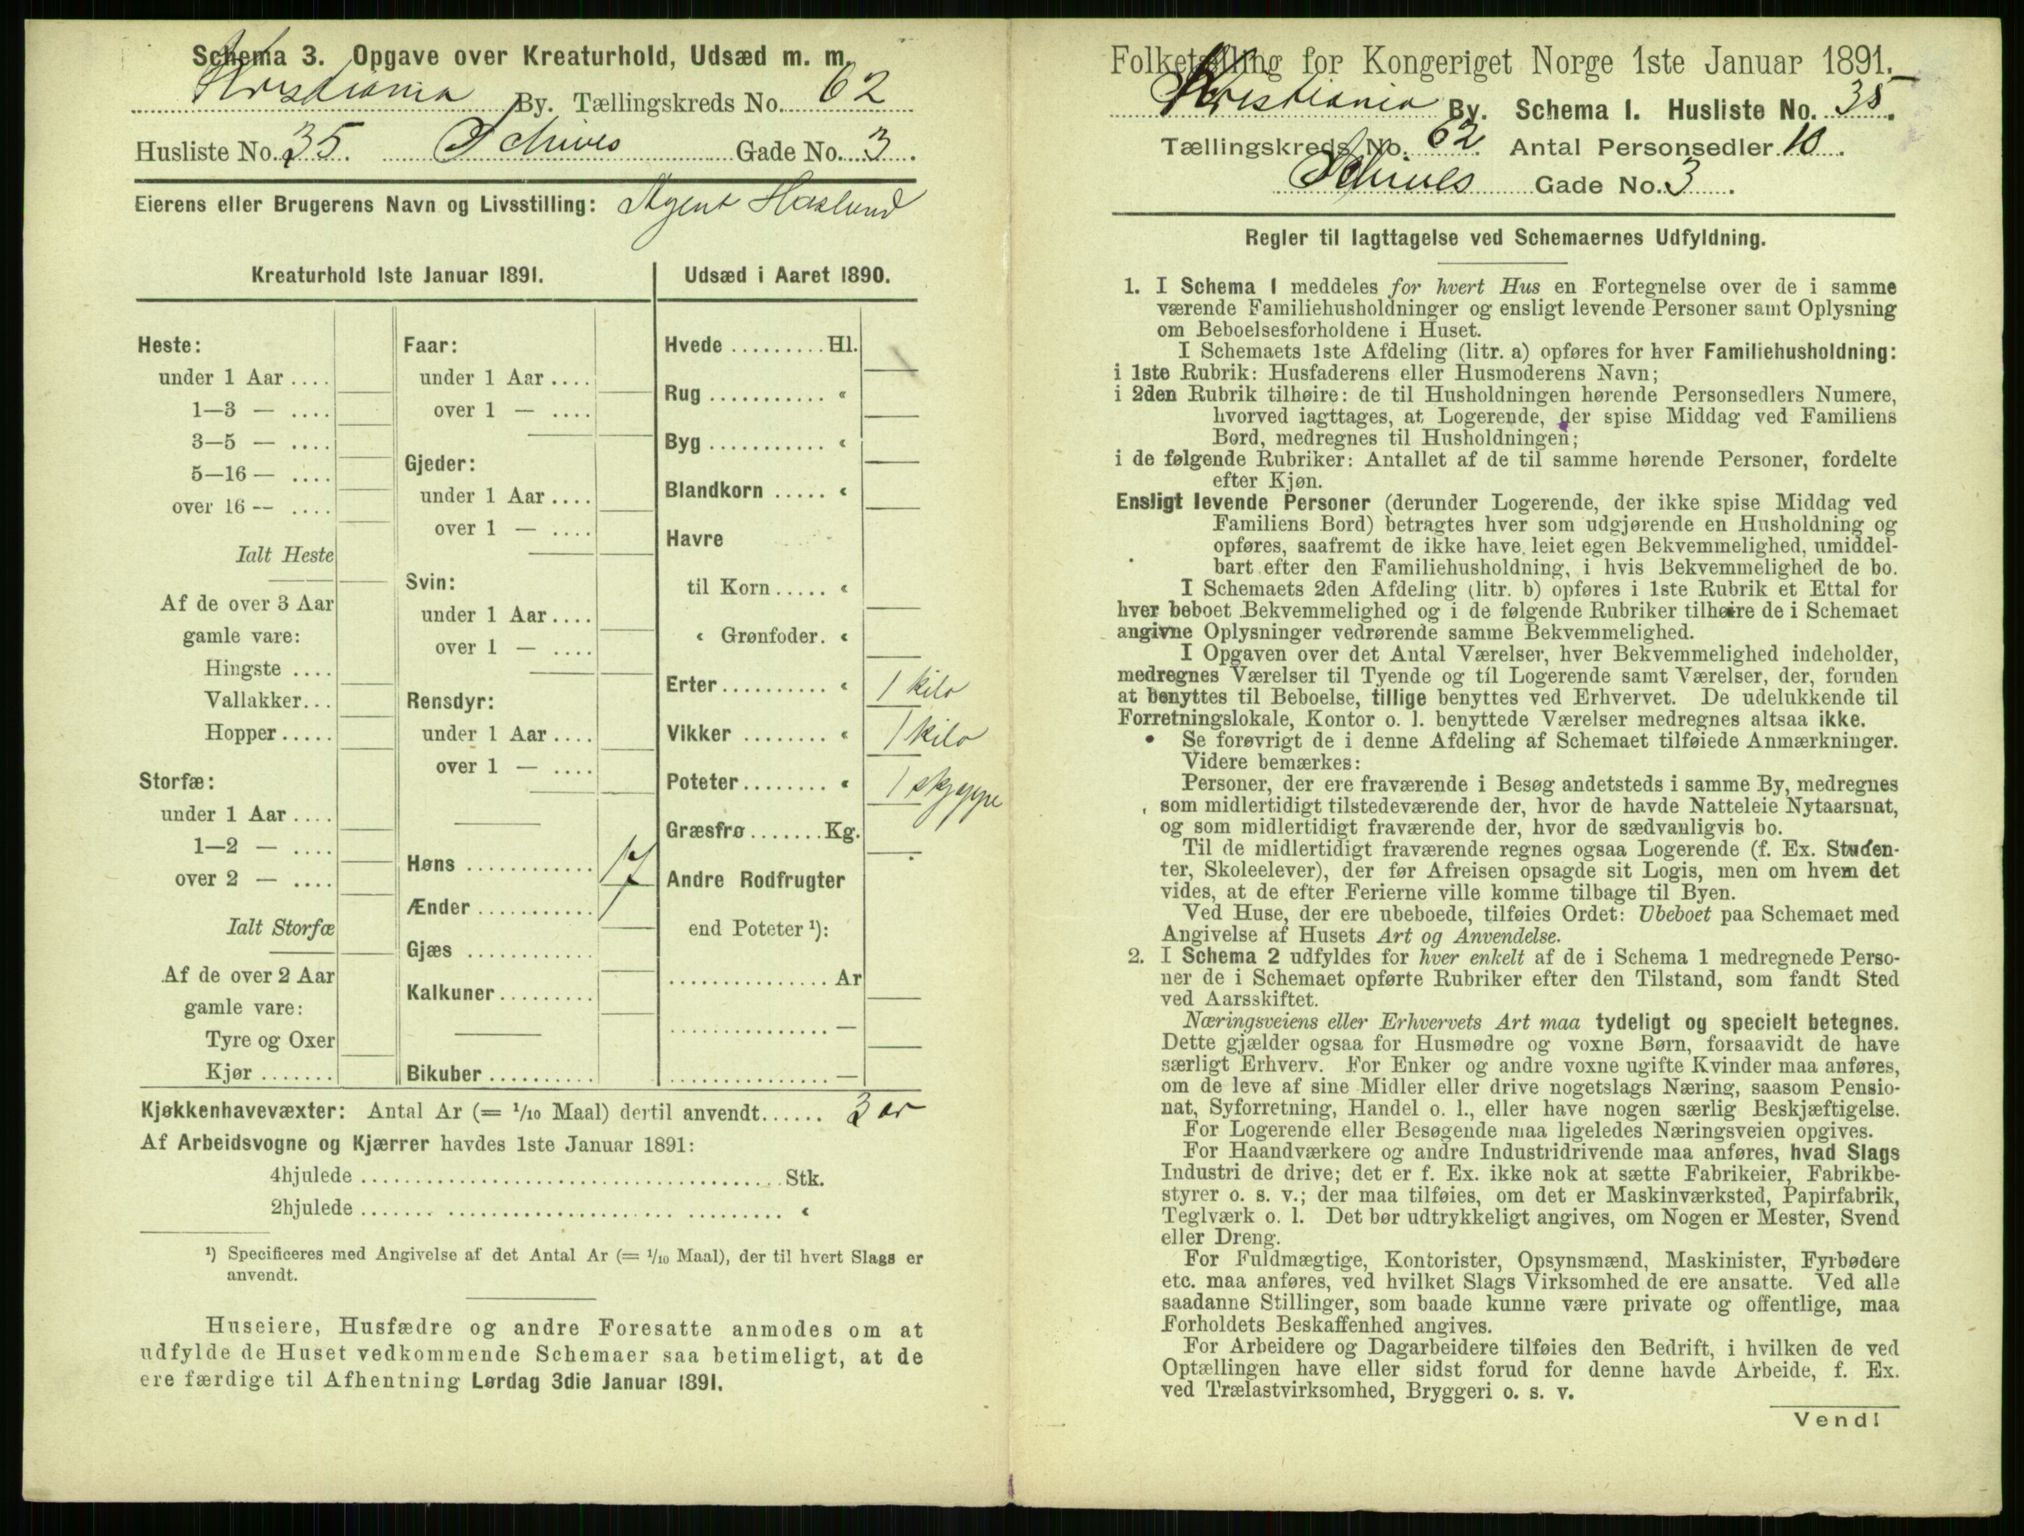 Schema 3. Opgave over Kreaturhold, Udsæd m. m.
Kristiania By. Tællingskreds No. 62
Husliste No. 35. Schives Gade No. 3.
Eierens eller Brugerens Navn og Livsstilling: Agent Haslund
Kreaturhold 1ste Januar 1891.
Heste:
under 1 Aar ....
1—3 — ....
3—5 — ....
5—16 — ....
over 16 — ....
Ialt Heste
Af de over 3 Aar
gamle vare:
Hingste ....
Vallakker...
Hopper .....
Storfæ:
under 1 Aar ....
1—2 — ....
over 2 — ....
Ialt Storfæ
Af de over 2 Aar
gamle vare:
Tyre og Oxer
Kjør .......
Faar:
under 1 Aar ....
over 1 — ....
Gjeder:
under 1 Aar ....
over 1 — ....
Svin:
under 1 Aar ....
over 1 — ....
Rensdyr:
under 1 Aar ....
over 1 — ....
Høns ........... 17
Ænder ...........
Gjæs ...........
Kalkuner .........
Bikuber ..........
Udsæd i Aaret 1890.
Hvede ......... Hl.
Rug ........... «
Byg ........... «
Blandkorn ..... «
Havre
til Korn ..... «
« Grønfoder. «
Erter .......... « 1 kilo
Vikker ........ « 1 kilo
Poteter ........ « 1 skjeppe
Græsfrø ....... Kg.
Andre Rodfrugter
end Poteter ¹):
............... Ar
............... —
............... —
Kjøkkenhavevæxter: Antal Ar (= 1/10 Maal) dertil anvendt...... 3 ar
Af Arbeidsvogne og Kjærrer havdes 1ste Januar 1891:
4hjulede ..................................... Stk.
2hjulede ..................................... «
¹) Specificeres med Angivelse af det Antal Ar (= 1/10 Maal), der til hvert Slags er
anvendt.
Huseiere, Husfædre og andre Foresatte anmodes om at
udfylde de Huset vedkommende Schemaer saa betimeligt, at de
ere færdige til Afhentning Lørdag 3die Januar 1891.
Folketælling for Kongeriget Norge 1ste Januar 1891.
Kristiania By. Schema 1. Husliste No. 35.
Tællingskreds No. 62. Antal Personsedler 10.
Schives Gade No. 3.
Regler til Iagttagelse ved Schemaernes Udfyldning.
1. I Schema 1 meddeles for hvert Hus en Fortegnelse over de i samme
værende Familiehusholdninger og ensligt levende Personer samt Oplysning
om Beboelsesforholdene i Huset.
I Schemaets 1ste Afdeling (litr. a) opføres for hver Familiehusholdning:
i 1ste Rubrik: Husfaderens eller Husmoderens Navn;
i 2den Rubrik tilhøire: de til Husholdningen hørende Personsedlers Numere,
hvorved iagttages, at Logerende, der spise Middag ved Familiens
Bord, medregnes til Husholdningen;
i de følgende Rubriker: Antallet af de til samme hørende Personer, fordelte
efter Kjøn.
Ensligt levende Personer (derunder Logerende, der ikke spise Middag ved
Familiens Bord) betragtes hver som udgjørende en Husholdning og
opføres, saafremt de ikke have leiet egen Bekvemmelighed, umiddel-
bart efter den Familiehusholdning, i hvis Bekvemmelighed de bo.
I Schemaets 2den Afdeling (litr. b) opføres i 1ste Rubrik et Ettal for
hver beboet Bekvemmelighed og i de følgende Rubriker tilhøire de i Schemaet
angivne Oplysninger vedrørende samme Bekvemmelighed.
I Opgaven over det Antal Værelser, hver Bekvemmelighed indeholder,
medregnes Værelser til Tyende og til Logerende samt Værelser, der, foruden
at benyttes til Beboelse, tillige benyttes ved Erhvervet. De udelukkende til
Forretningslokale, Kontor o. l. benyttede Værelser medregnes altsaa ikke.
Se forøvrigt de i denne Afdeling af Schemaet tilføiede Anmærkninger.
Videre bemærkes:
Personer, der ere fraværende i Besøg andetsteds i samme By, medregnes
som midlertidigt tilstedeværende der, hvor de havde Natteleie Nytaarsnat,
og som midlertidigt fraværende der, hvor de sædvanligvis bo.
Til de midlertidigt fraværende regnes ogsaa Logerende (f. Ex. Studen-
ter, Skoleelever), der før Afreisen opsagde sit Logis, men om hvem det
vides, at de efter Ferierne ville komme tilbage til Byen.
Ved Huse, der ere ubeboede, tilføies Ordet: Ubeboet paa Schemaet med
Angivelse af Husets Art og Anvendelse.
2. I Schema 2 udfyldes for hver enkelt af de i Schema 1 medregnede Perso-
ner de i Schemaet opførte Rubriker efter den Tilstand, som fandt Sted
ved Aarsskiftet.
Næringsveiens eller Erhvervets Art maa tydeligt og specielt betegnes.
Dette gjælder ogsaa for Husmødre og voxne Børn, forsaavidt de have
særligt Erhverv. For Enker og andre voxne ugifte Kvinder maa anføres,
om de leve af sine Midler eller drive nogetslags Næring, saasom Pensio-
nat, Syforretning, Handel o. l., eller have nogen særlig Beskjæftigelse.
For Logerende eller Besøgende maa ligeledes Næringsveien opgives.
For Haandværkere og andre Industridrivende maa anføres, hvad Slags
Industri de drive; det er f. Ex. ikke nok at sætte Fabrikeier, Fabrikbe-
styrer o. s. v.; der maa tilføies, om det er Maskinværksted, Papirfabrik,
Teglværk o. l. Det bør udtrykkeligt angives, om Nogen er Mester, Svend
eller Dreng.
For Fuldmægtige, Kontorister, Opsynsmænd, Maskinister, Fyrbødere
etc. maa anføres, ved hvilket Slags Virksomhed de ere ansatte. Ved alle
saadanne Stillinger, som baade kunne være private og offentlige, maa
Forholdets Beskaffenhed angives.
For Arbeidere og Dagarbeidere tilføies den Bedrift, i hvilken de ved
Optællingen have eller sidst forud for denne havde Arbeide, f. Ex.
ved Trælastvirksomhed, Bryggeri o. s. v.
Vend!